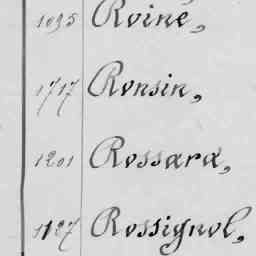 1095 Roiné,
1717 Ronsin,
1201 Rossara,
1127 Rossignol,